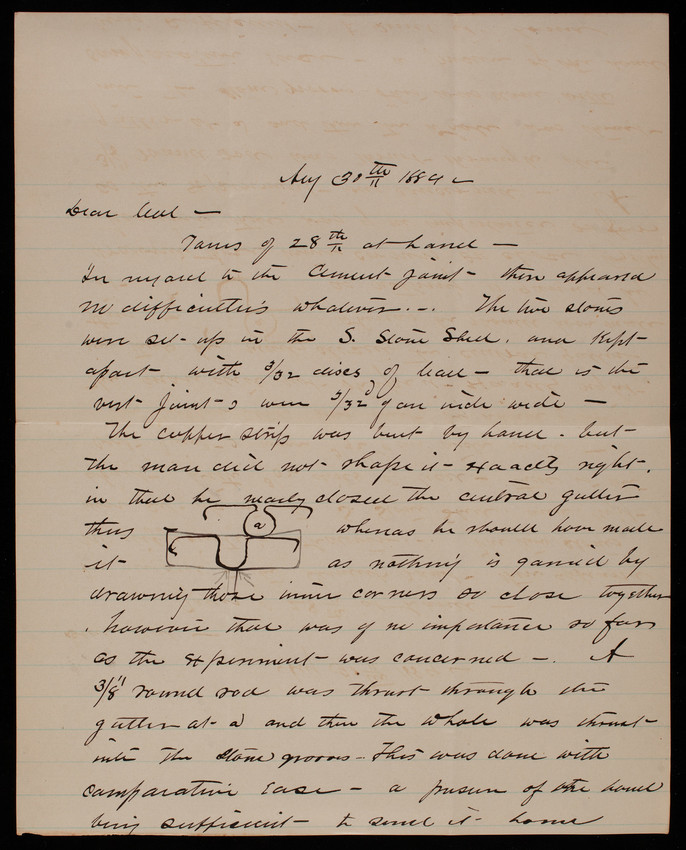 Aug 30th 1884 —
Dear Col —
Yours of 28th at hand —
In regard to the Cement joint — there appeared
no difficulties whatever. —. The two stones
were set up in the S. Stone Shed. and kept
apart with 3/32 discs of lead — that is the
vert joints were 3/32 of an inch wide —
The copper strip was bent by hand. but
the man did not shape it exactly right.
in that he nearly closed the central gutter
thus whereas he should have made
a
it as nothing is gained by
drawing those inner corners so close together
. however that was of no importance so far
as the experiment was concerned —. A
3/8" round rod was thrust through the
gutter at a and then the whole was thrust
into the stone grooves — This was done with
comparative ease — a pressure of the hand
being sufficient to send it home